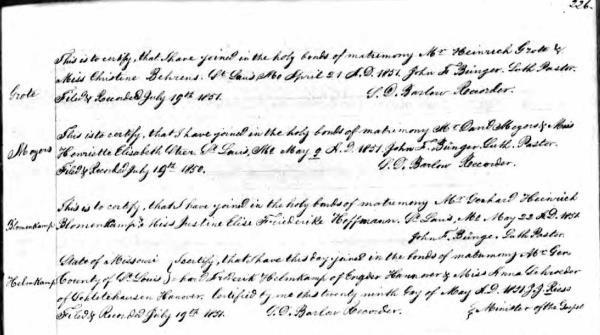 226.
This is to certify, that I have joined in the holy bonds of matrimony Mr Heinrich Grote &
Miss Christine Behrens. St Louis, Mo April 21 A.D. 1851. John F. Bünger. Luth Pastor.
Grote
Filed & Recorded July 19th 1851. S. D. Barlow Recorder.
This is to certify, that I have joined in the holy bonds of matrimony Mr David Meyers & Miss
Meyers
Henriette Elisabeth St Louis, Mo May 9 A.D. 1851. John F. Bünger. Luth. Pastor.
Filed & Recorded July 19th 1850. S. D. Barlow Recorder.
This is to certify, that I have joined in the holy bonds of matrimony Mr Gerhard Heinrich
Blomenkamp
Blomenkamp & Miss Justine Elise Friederike Hoffmann. St Louis, Mo May 22 A.D. 1851
John F. Bünge. Luth Pastor.
State of Missouri } I certify, that I have this day joined in the bonds of matrimony Mr Ger
Helmkamp
County of St Louis } hard Frederik Helmkamp of Engter Hannover & Miss Anna
of Hanover. Certified by me this twenty ninth day of May A.D. 1851 J. J. Riess
Filed & Recorded July 19th 1851. S. D. Barlow Recorder. & Minister of the Gospel